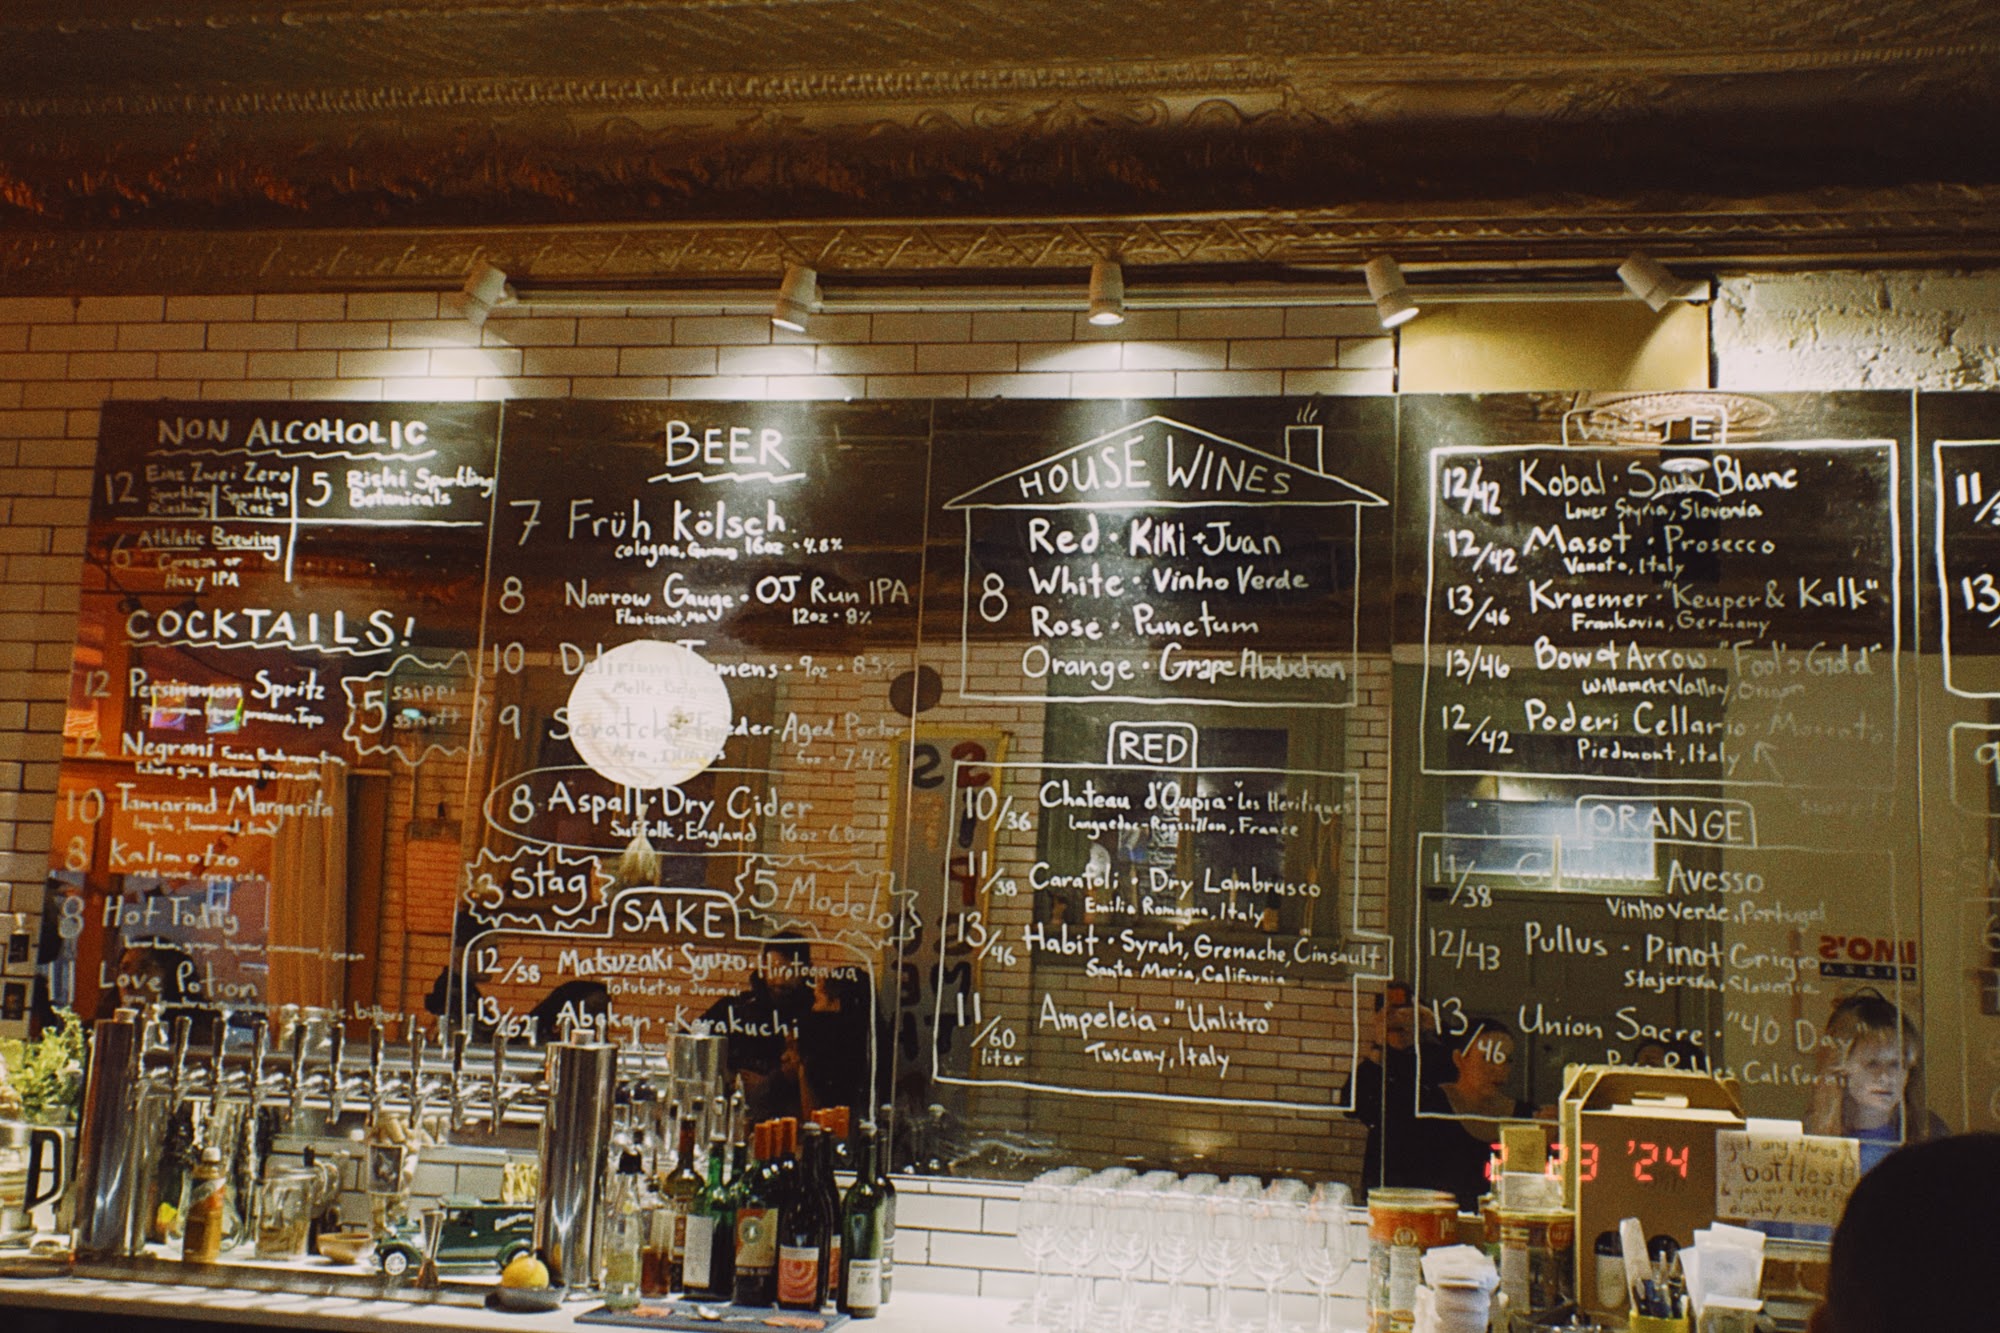 NON ALCOHOLIC
12 Einz Zwei Zero
Sparkling Riesling | Sparkling Rosé
5 Rishi Sparkling
Botanicals
6 Athletic Brewing
Cerveza or
Hazy IPA
COCKTAILS!
12 Persimmon Spritz
12 Negroni
10 Tamarind Margarita
tequila, tamarind, lime
8 Kalimotxo
red wine, coca cola
8 Hot Toddy
Love Potion
5
BEER
7 Früh Kölsch
Cologne, Germany 16oz • 4.8%
8 Narrow Gauge • OJ Run IPA
Florissant, MO 12oz • 8%
10 Delirium Tremens • 9oz • 8.5%
9 Scratch • Feeder-Aged Porter
8 Aspall • Dry Cider
Suffolk, England 16oz
3 Stag
5 Modelo
SAKE
12/58 Matsuzaki Syuzo • Hirotogawa
13/62 Abekan • Karakuchi
HOUSE WINES
8
Red • Kiki + Juan
White • Vinho Verde
Rosé • Punctum
Orange • Grape Abduction
RED
10/36 Chateau d'Oupia • Les Heretiques
Languedoc-Roussillon, France
11/38 Carafoli • Dry Lambrusco
Emilia Romagna, Italy
13/46 Habit • Syrah, Grenache, Cinsault
Santa Maria, California
11/60 liter Ampeleia • "Unlitro"
Tuscany, Italy
WHITE
12/42 Kobal • Sauv Blanc
Lower Styria, Slovenia
12/42 Masot • Prosecco
Veneto, Italy
13/46 Kraemer • "Keuper & Kalk"
Frankovia, Germany
13/46 Bow & Arrow • "Fool's Gold"
Willamete Valley, Oregon
12/42 Poderi Cellario • Moscato
Piedmont, Italy
ORANGE
11/38 Avesso
Vinho Verde, Portugal
12/43 Pullus • Pinot Grigio
Stajerska, Slovenia
13/46 Union Sacre • "40 Day"
Paso Robles California
11/
13/
9
IMO'S
PIZZA
2 23 '24
get any three
bottles!
& you get VERY
display case!